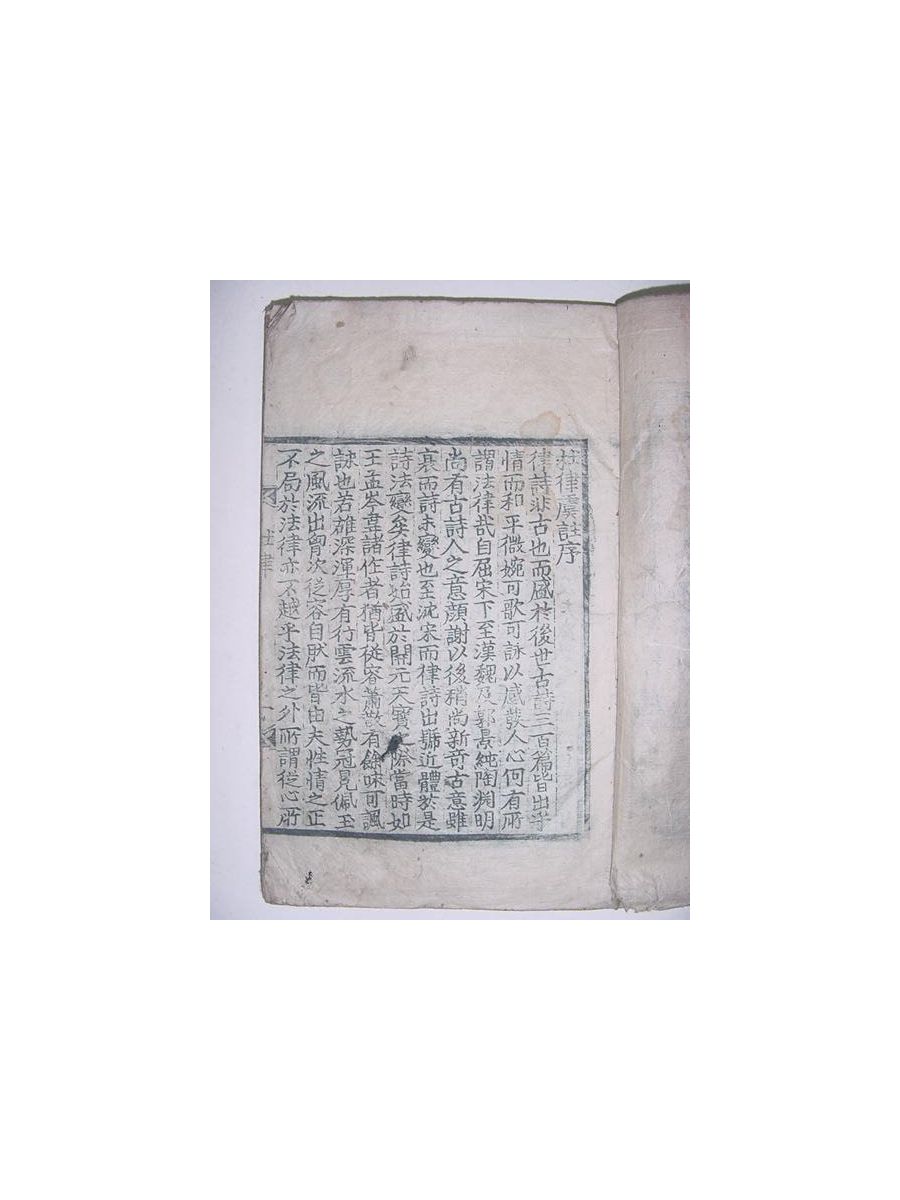 杜律虞註序
律詩非古也而盛於後世古詩三百篇皆出乎
情而和平微婉可歌可詠以感發人心何有所
謂法律哉自屈宋下至漢魏及郭景純陶淵明
尚有古詩人之意顔謝以後稍尚新奇古意雖
衰而詩未變也至沈宋而律詩出號近體於是
詩法變矣律詩始盛於開元天寶之際當時如
王孟岑韋諸作者猶皆從容蕭散有餘味可諷
詠也若雄深渾厚有行雲流水之勢冠冕佩玉
之風流出胷次從容自然而皆由夫性情之正
不局於法律亦不越乎法律之外所謂從心所
杜律
一